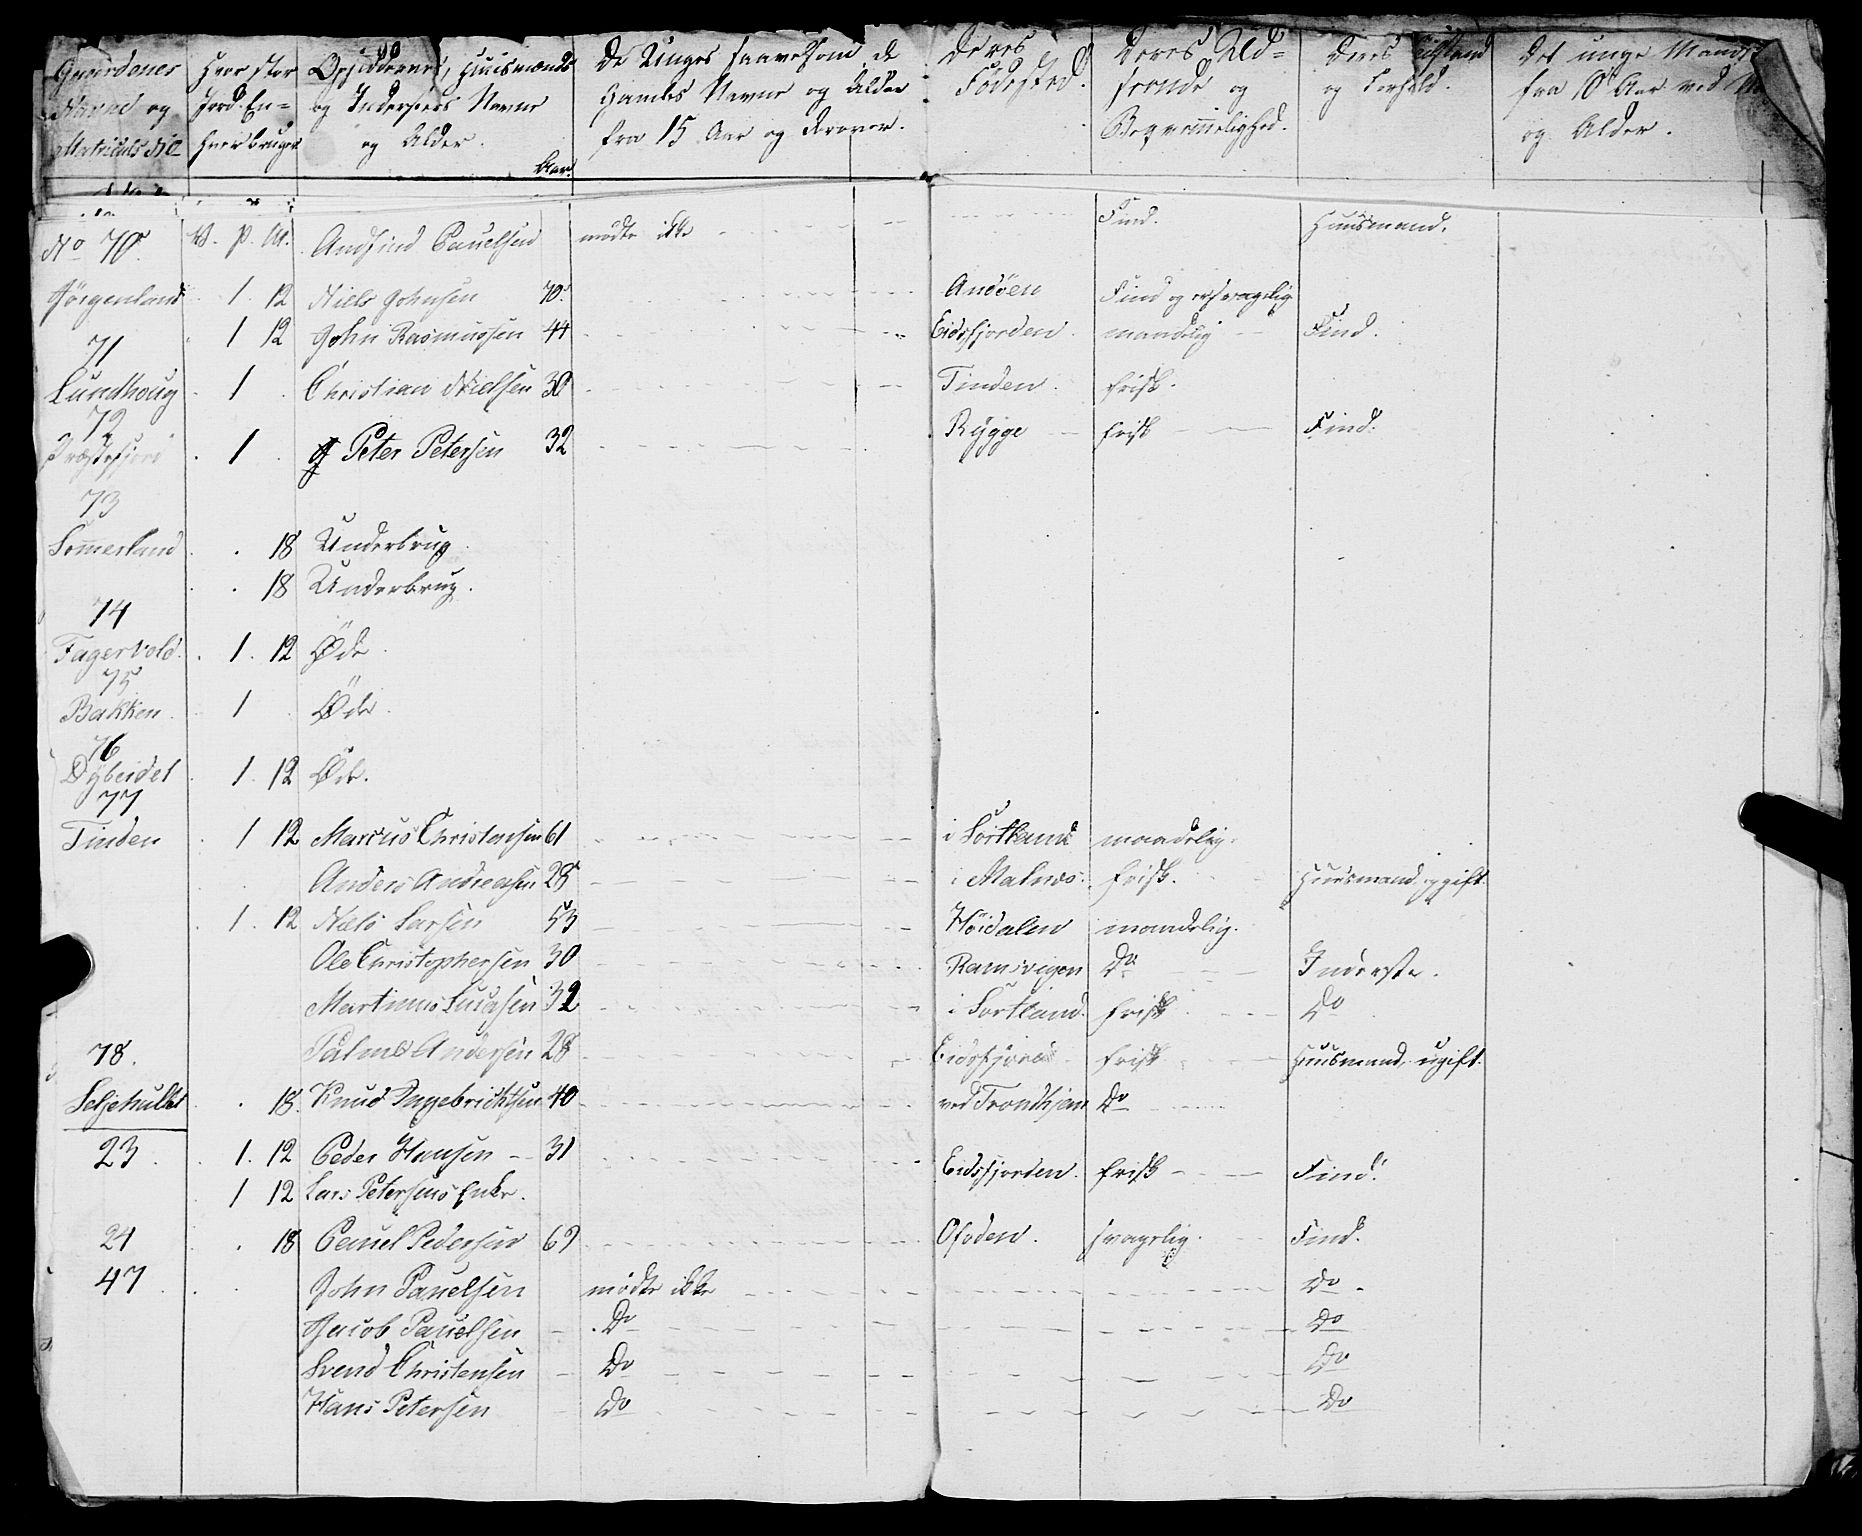 Gaardenes Navne og Matriculs No
Hvor stor Jord Enhver bruger
Opsiddernes, Huusmænds og Indersters Navne og Alder. Aar.
De Unges saavelsom de Gamles Navne og Alder fra 15 Aar og derover.
Deres Fødested.
Deres Udseende og Beqvemmelighed.
Deres og Forhold.
Det unge Mands fra 10 Aar og Alder.
No 70. V. P. M. Andfind Pauelsen mødte ikke Find. Huusmand.
Jörgenland 1 12 Niels Johnsen 70. Andöen Find og svagelig
1 12 John Rasmussen 44 Eidsfjorden. maadelig Find.
71
Lundhoug 1 Christian Nielsen 30 Tinden. frisk.
72
Præstefjord 1 Peter Petersen 32 Rygge frisk Find.
73
Somerland 18 Underbrug
18 Underbrug.
74
Fagervold. 1. 12 Öde.
75
Bakken. 1 Öde.
76
Dybeidet 1. 12 Öde.
77
Tinden 1 12 Marcus Christensen 61 i Sortland maadelig.
Anders Andreasen 28 i Malnæs. frisk. Huusmand, og gift.
1. 12 Niels Larsen 53 Höidalen maadelig.
Ole Christophersen 30 Ramsvigen Do Inderste.
Martinus Lucasen 32 i Sortland. frisk Do
78. Andersen 28 Eidsfjord frisk Huusmand, ugift.
Seljehullet 18. Knud Ingebrichtsen 40 ved Trondhjem Do
23. 1. 12 Peder Hansen 31 Eidsfjorden. frisk Find.
1 12 Lars Petersens Enke.
24 18 Pauel Pedersen 69 Ofoden. svagelig. Find.
47 John Pauelsen mødte ikke Do
Jacob Pauelsen Do Do
Svend Christensen Do Do
Hans Petersen Do Do